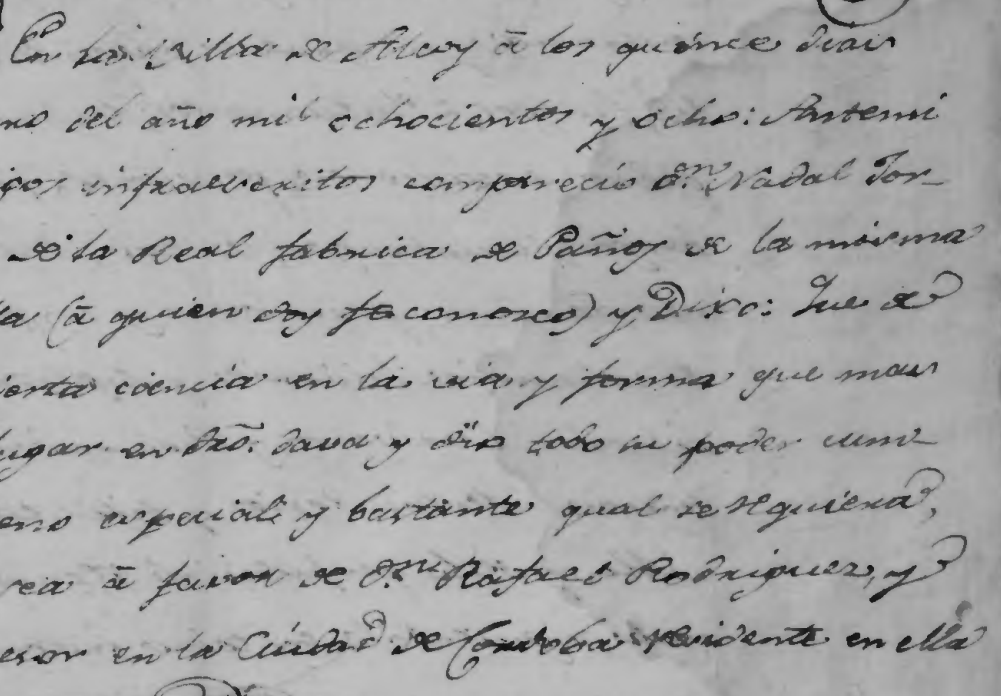 En la Villa de Alcoy â los quinse dias
no del año mil ochocientos y ocho: Antemi
igos infraescritos comparecio dn. Nadal Tor-
de la Real fabrica de Paños de la misma
la (â quien doy fe conosco) y Dixo: Que de
ierta ciencia en la via y forma que mas
lugar en dro. dava y dio todo su poder cum-
eno especial y bastante qual se requiera,
sea â favor de dn. Rafael Rodriguez, y
esor en la Ciudad de Cordoba residente en ella